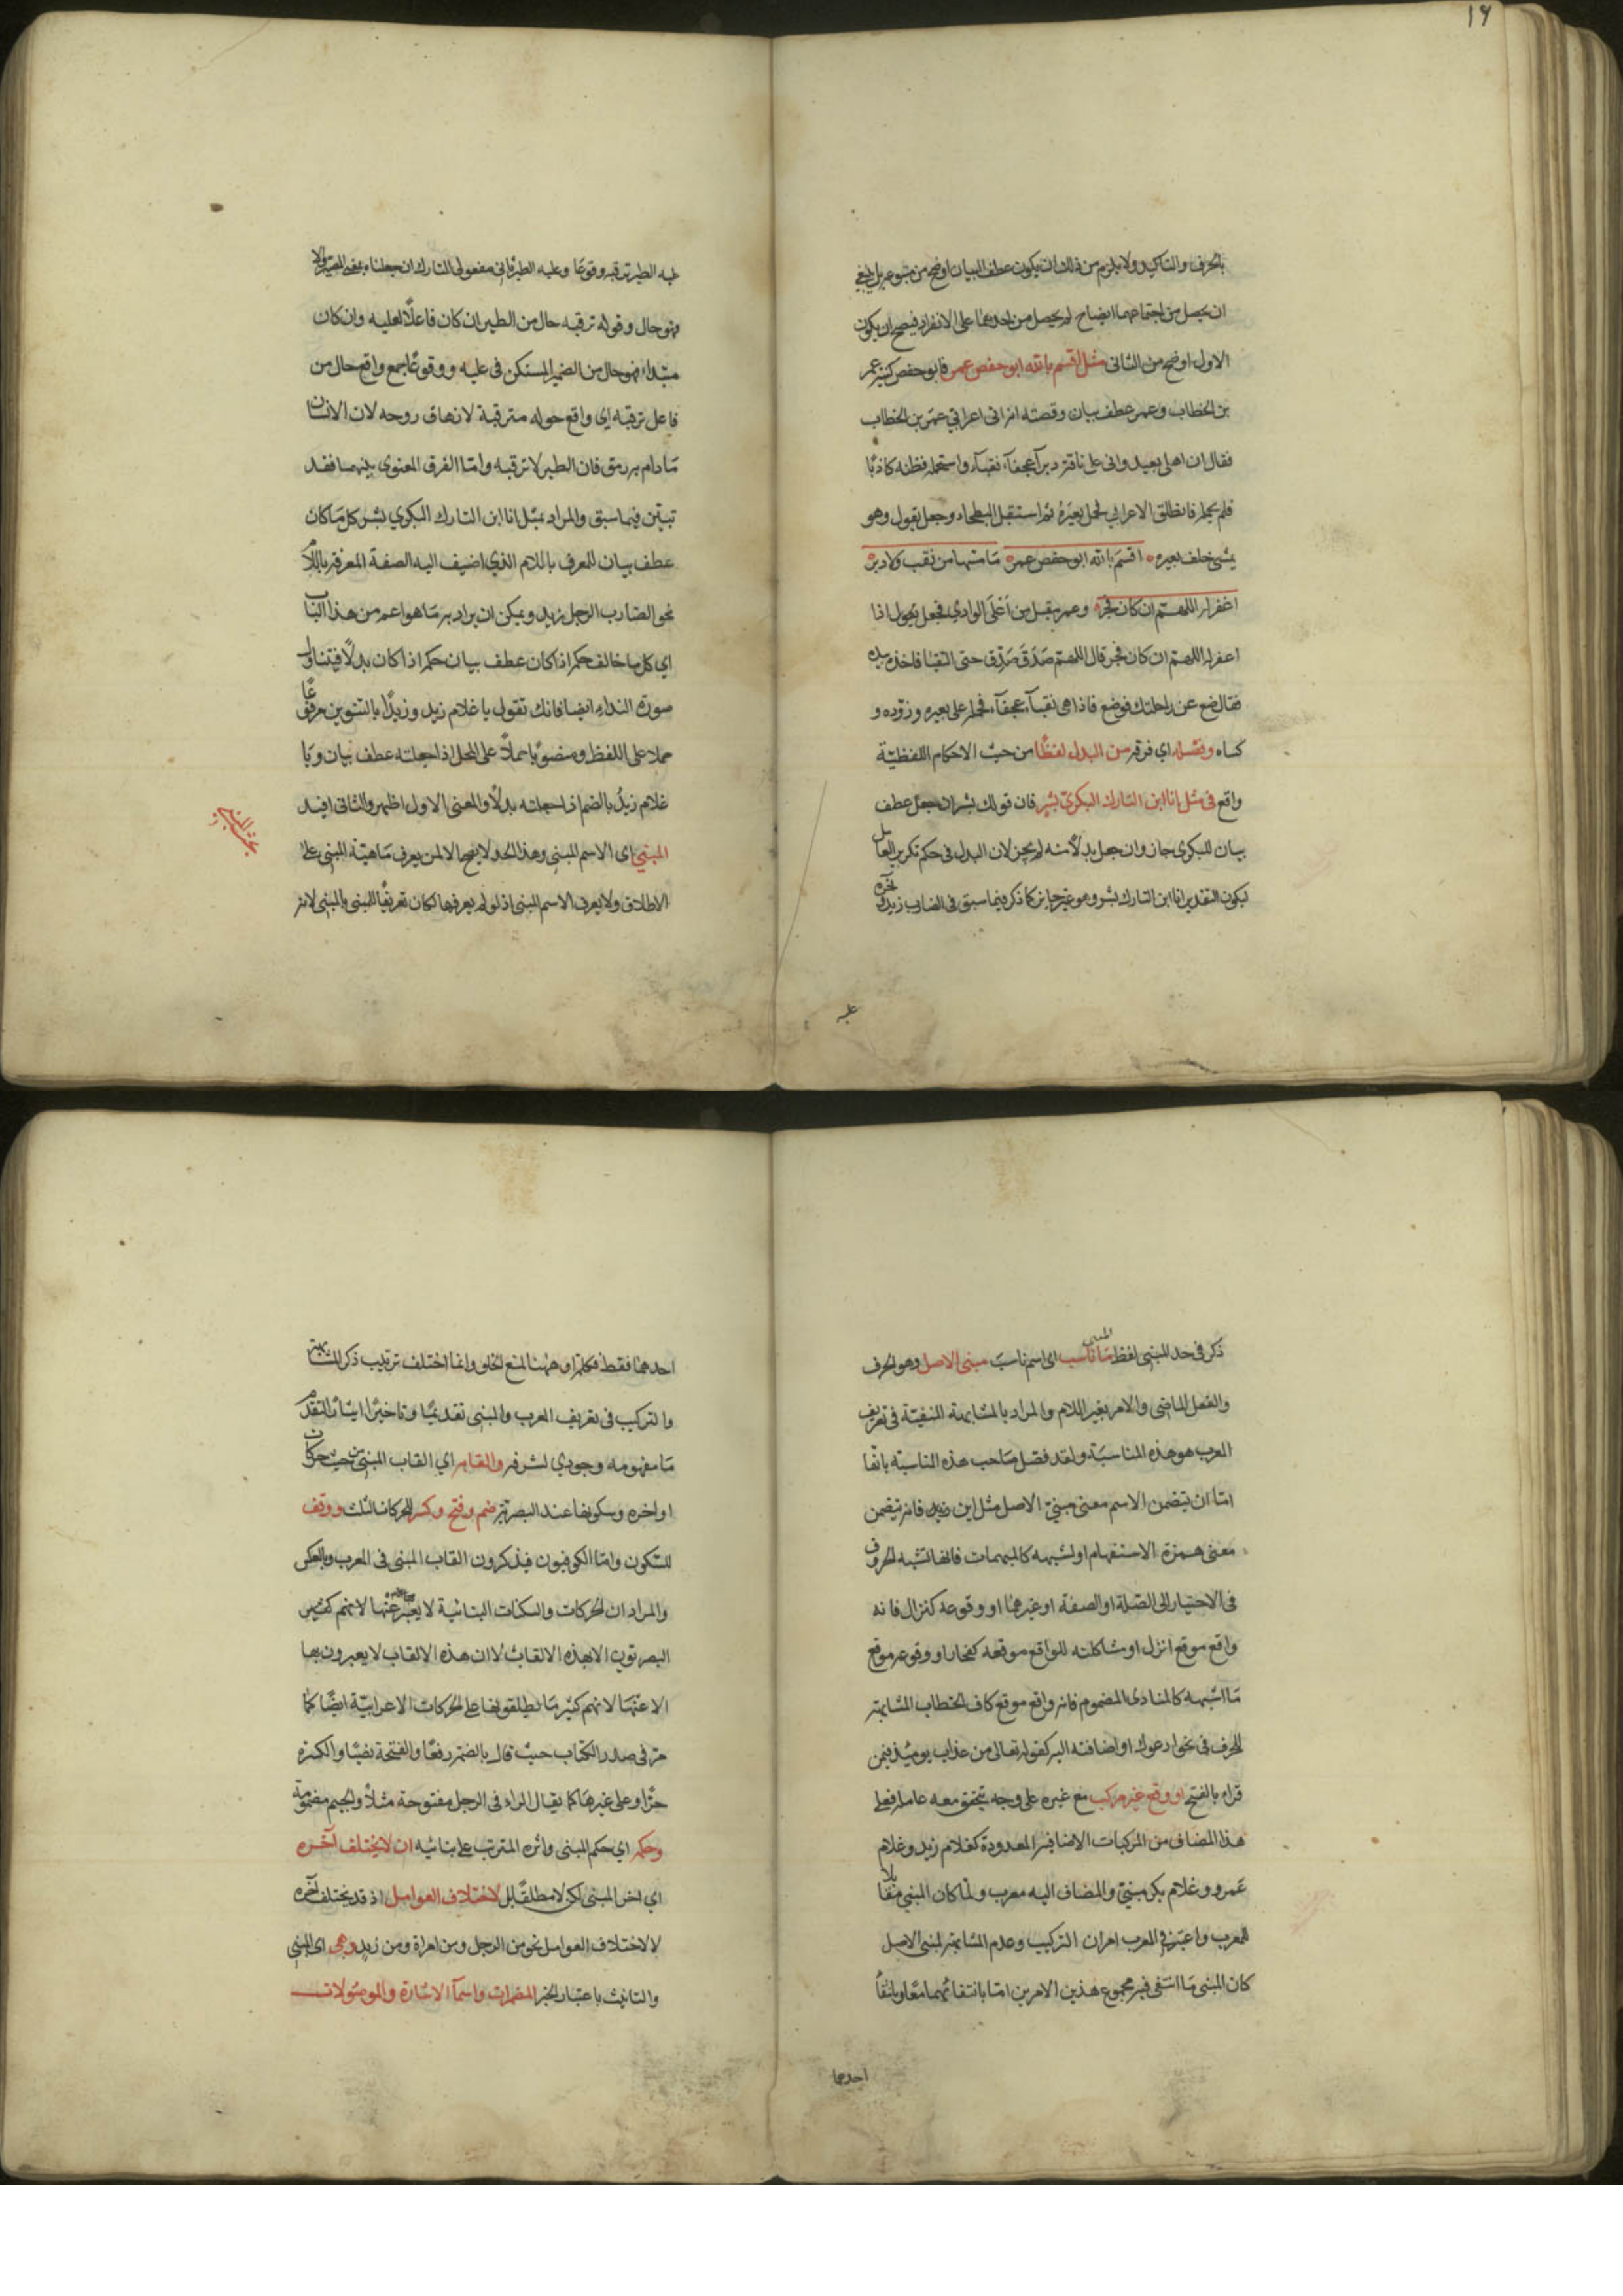 ١٦
بالحرف والتاكيد ولا يلزم من ذلك ان يكون عطف البيان اوضح من متبوعه بل ينبغي
ان يحصل من اجتماعهما ايضاح لم يحصل من احدهما على الانفراد فيصح ان يكون
الاول اوضح من الثانى مثل اقسم بالله ابو حفص عمر فابو حفص كنية عمر
بن الخطاب وعمر عطف بيان وقصته انه اتى اعرابي عمر بن الخطاب
فقال ان اهلى بعيد وانى على ناقة دبرآء عجفآء نقبآء واستحمله فظنه كاذبًا
فلم يحمله فانطلق الاعرابي فحل بعيرَهُ ثم استقبل البطحاء وجعل يقول وهو
يمشي خلف بعيره اقسَمَ بالله ابو حفص عمر مَا مسّها من نقب ولا دبر
اغفر له اللهم ان كان فجر وعمر مقبل من اَعْلَى الوادي فجعل يقول اذا
اغفر له اللهم ان كان فجر قال اللهم صَدّقَ صَدّق حتى التقيا فاخذ بيده
فقال ضع عن راحلتك فوضع فاذا هى نقبآء عجفآء فحمله على بعيره وزوّده و
كساه وفصله اي فرقه من البدل لفظًا من حيث الاحكام اللفظيّة
واقع فى مثل انا ابن التارك البكري بشر فان قولك بشر ان جعل عطف
بيان للبكرى جاز وان جعل بدلًا منه لم يجز لان البدل فى حكم تكرير العامل
ليكون التقدير انا ابن التارك بشر وهو غير جايز كما ذكره فيما سبق فى الضارب زيد وآخره
عليه
عليه الطير ترقبه وقوعًا وعليه الطير ثانى مفعولى التارك ان جعلناه بمعنى المصير والا
فهو حال وقوله ترقبه حال من الطير ان كان فاعلًا لعليه وان كان
مبتداء فهو حال من الضمير المستكن فى عليه ووقوعًا جمع واقع حال من
فاعل ترقبه اي واقع حوله مترقبة لانزهاق روحه لان الانسان
مَا دام به رمق فان الطير لا ترقبه وامّا الفرق المعنوي بينهما فقد
تبيّن فيما سبق والمراد بمثل انا ابن التارك البكري بشر كل مَا كان
عطف بيان للمعرف باللام الذي اضيف اليه الصفة المعرفة باللام
نحو الضارب الرجل زيد ويمكن ان يراد به مَا هو اعم من هذا الباب
اي كل ما خالف حكمه اذا كان عطف بيان حكمه اذا كان بدلًا فيتناول
صورة النداء ايضا فانك تقول يا غلام زيد وزيدًا بالتنوين مرفوعًا
حملا على اللفظ ومنصوبا حملاً على المحل اذا جعلته عطف بيان ويا
غلام زيدُ بالضم اذا جعلته بدلًا والمعنى الاول اظهر والثانى افيد
المبنى اى الاسم المبني وهذا الحد لا يصح الا لمن يعرف مَاهيّة المبنى على
الاطلاق ولا يعرف الاسم المبنى اذ لو لم يعرفها لكان تعريفًا للمبنى بالمبنى لانه
ذكر في حد المبني لفظ المبنى مَا ناسب اى اسم ناسبَ مبنى الاصل وهو الحرف
والفعل الماضى والامر بغير اللام والمراد بالمشابهة المنفيّة فى تعريف
المعرب هو هذه المناسبَة ولقد فصل صَاحب هذه المناسبة بانّها
امّا ان يتضمن الاسم معنى مبنيّ الاصل مثل اين زيد فانه يتضمن
معنى همزة الاستفهام او لشبهه كالمبهمات فانها تشبه الحروف
فى الاحتياج الى الصّلة او الصفة او غيرهما او وقوعه كنزال فانه
واقع موقع انزل او مشاكلته للواقع موقعه كفجار او وقوعه موقع
مَا اشبهه كالمنادى المضموم فانه واقع موقع كاف الخطاب المشابهة
للحرف فى نحو ادعوك او اضافته اليه كقوله تعالى من عذاب يومئذ فيمن
قراء بالفتح او وقع غير مركب مع غيره على وجه يتحقق معه عامله فعلى
هذا المضاف من المركبات الاضافية المعدودة كغلام زيد وغلام
عَمرو وغلام بكر مبنيّ والمضاف اليه معرب ولمّا كان المبني مقابلا
للمعرب واعتبر فى المعرب امران التركيب وعدم المشابهة لمبنى الاصل
كان المبنى مَا انتفى فيه مجموع هذين الامرين امّا بانتفائهما معًا او بانتفاء
احدهما
احدهما فقط فكلمة او ههنا لمنع الخلو وانما اختلف ترتيب ذكر المشابهة
والتركيب فى تعريف المعرب والمبنى تقديمًا وتاخيرًا ايثارًا لتقديم
مَا مفهومه وجودي لشرفه والقابه اي القاب المبني من حيث حركات
اواخره وسكونها عند البصريّة ضم وفتح وكسر للحركات الثلث ووقف
للسّكون وامّا الكوفيون فيذكرون القاب المبنى فى المعرب وبالعكس
والمراد ان الحركات والسكنات البنائية لا يعبّر عنها
البصريّون الا بهذه الالقاب لا ان هذه الالقاب لا يعبرون بها
الا عنهَا لانهم كثيرًا مَا يطلقونها على الحركات الاعرابيّة ايضًا كما
مرّ فى صدر الكتاب حيث قال بالضمّة رفعًا والفتحة نصبًا والكسرة
جرًا وعلى غيرهَا كما يقال الراء فى الرجل مفتوحة مثلاً والجيم مضمومة
وحكمه اي حكم المبنى واثره المترتب على بنائيه ان لا يختلف آخره
اي اخر المبنى لكن لا مطلقًا بل لاختلاف العوامل اذ قد يختلف آخره
لا لاختلاف العوامل نحو من الرجل ومن امراة ومن زيد وهى اى المبنى
والتانيث باعتبار الخبر المضمرات واسمآء الاشارة والموصُولات